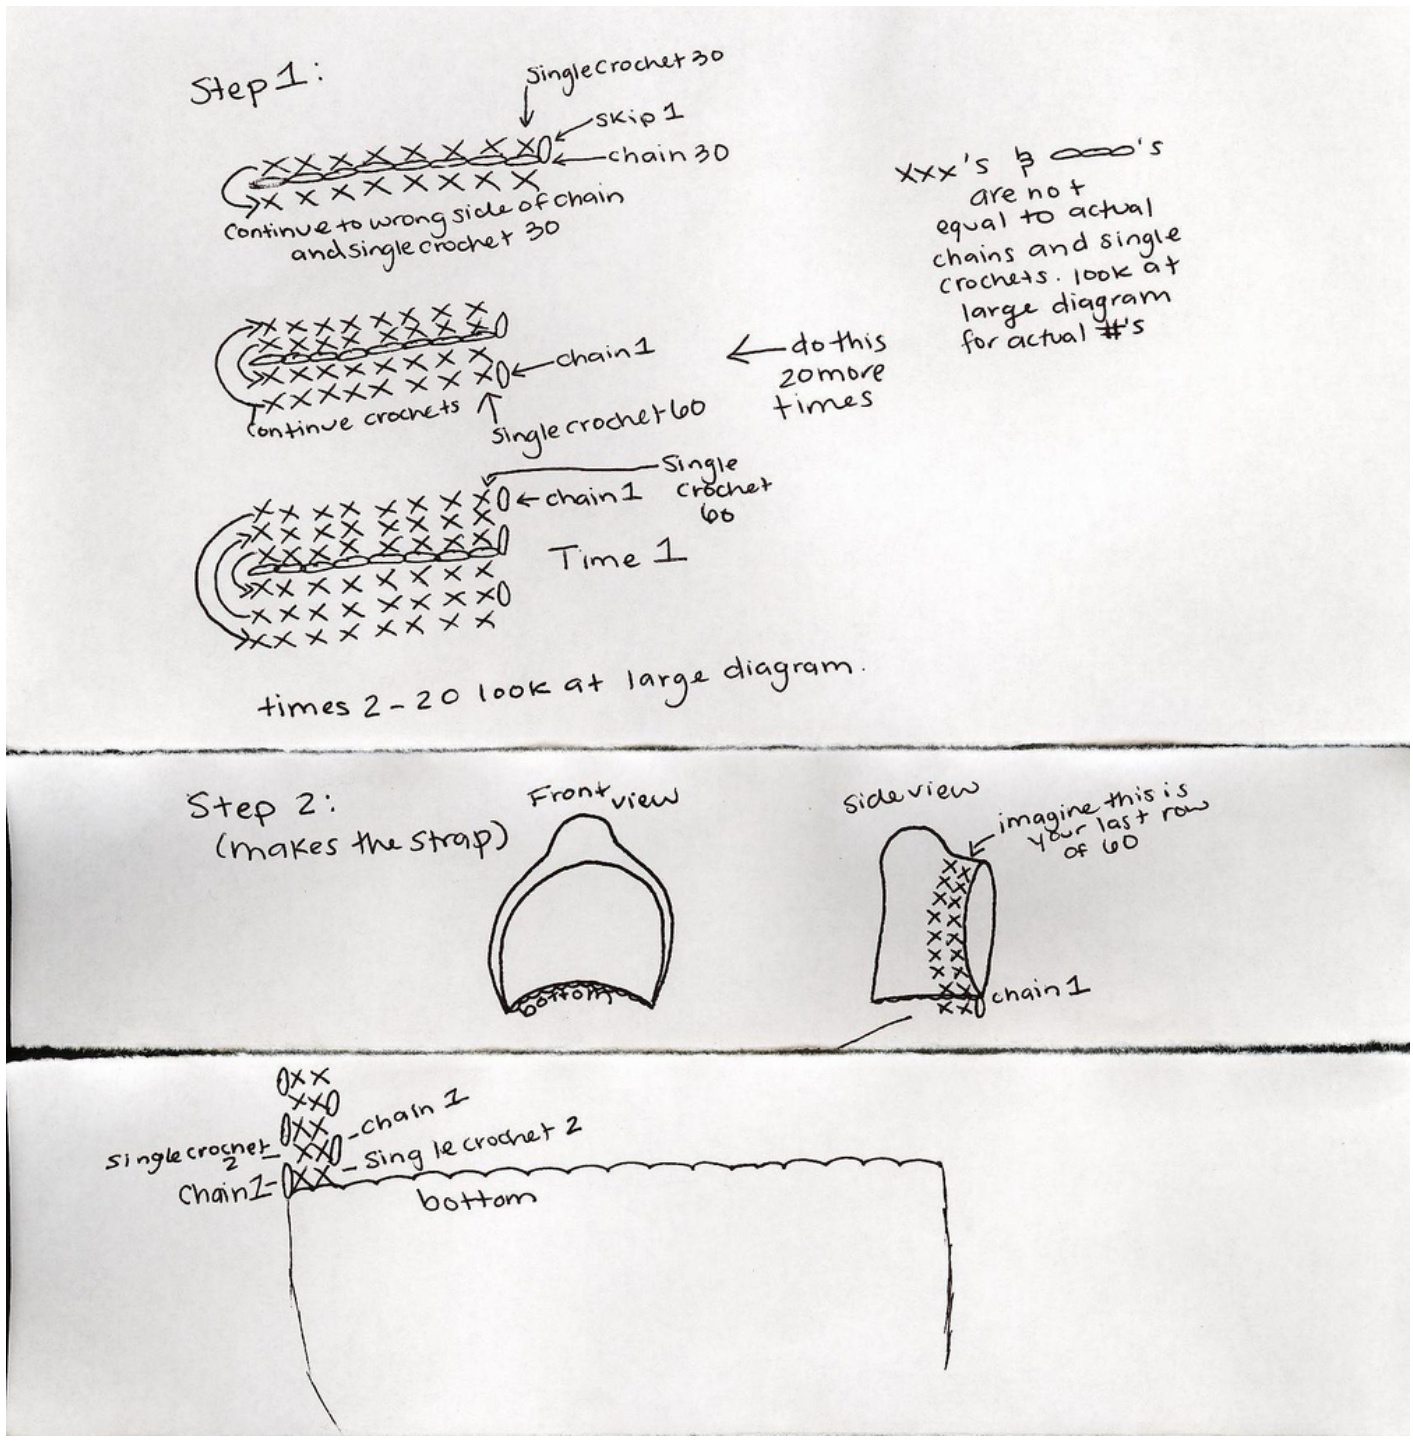 Step 1:
single crochet 30
skip 1
chain 30
continue to wrong side of chain
and single crochet 30
xxx's & 's
are not
equal to actual
chains and single
crochets. look at
large diagram
for actual #'s
chain 1
do this
20 more
times
continue crochets
single crochet 60
Single
crochet
60
chain 1
Time 1
times 2-20 look at large diagram.
Step 2:
(makes the strap)
Front view
side view
imagine this is
your last row
of 60
bottom
chain 1
chain 1
single crochet
2
single crochet 2
chain 1
bottom